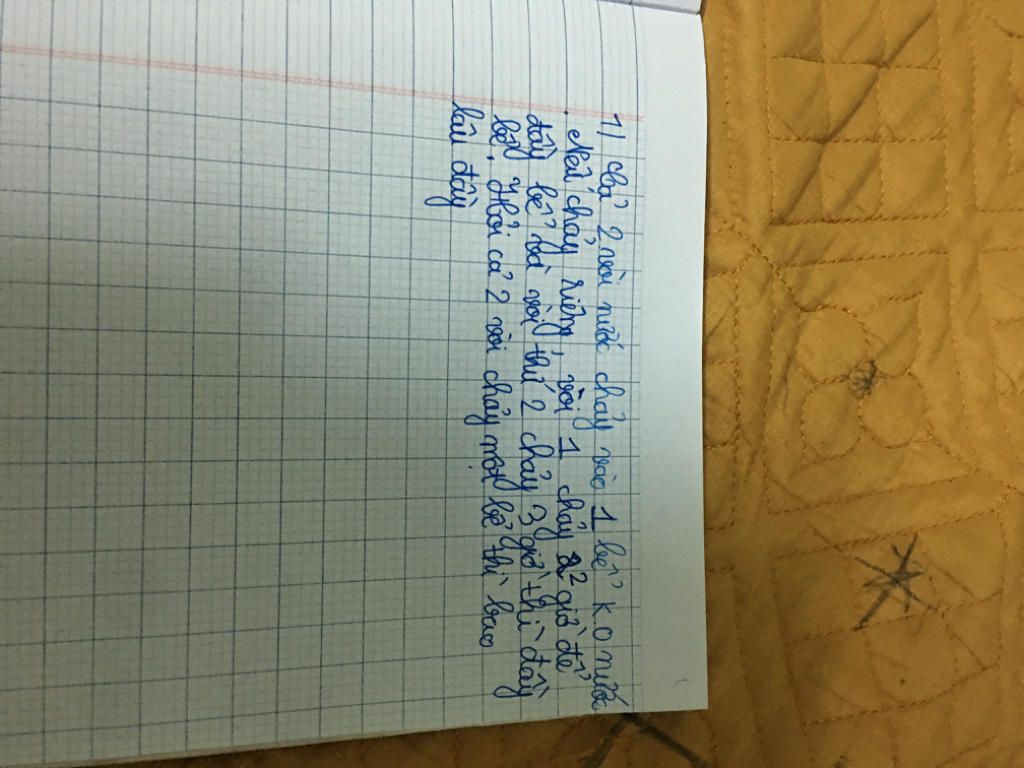 1) Cả 2 vòi nước chảy vào 1 bể k.0 nước
. Nếu chảy riêng, vòi 1 chảy 2 giờ để
đầy bể và vòi thứ 2 chảy 3 giờ thì đầy
bể. Hỏi cả 2 vòi chảy một bể thì bao
lâu đầy